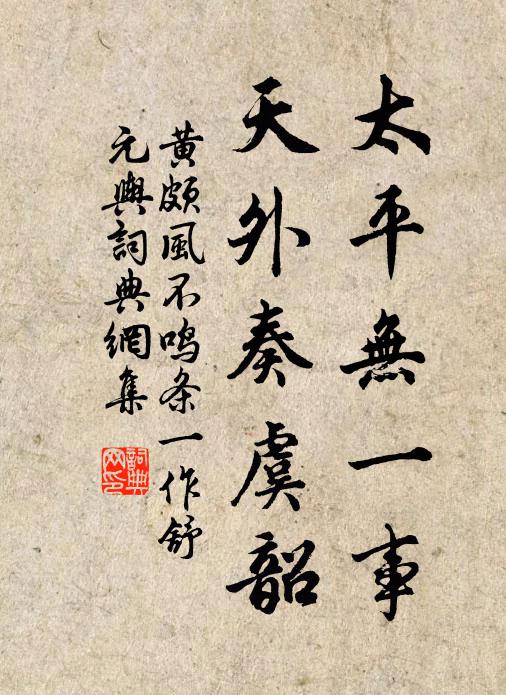 太平無一事
天外奏虞韶
黄颇風不鳴条一作舒
元輿詞典網集
詞典
网印